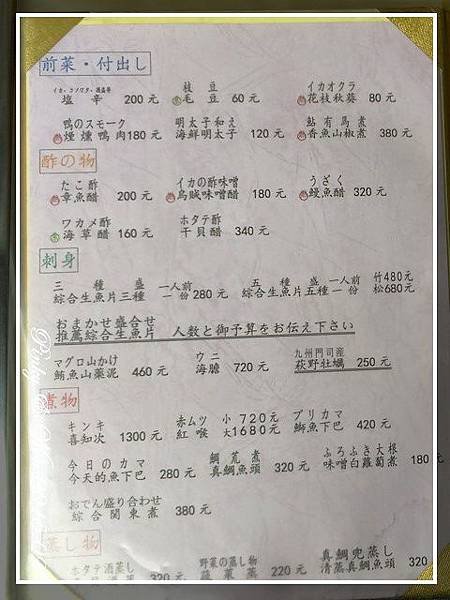 前菜・付出し
イカ・コノワタ・酒盗等 枝豆 イカオクラ
塩辛 200元 毛豆 60元 花枝秋葵 80元
鴨のスモーク 明太子和え 鮎有馬煮
煙燻鴨肉 180元 海鮮明太子 120元 香魚山椒煮 380元
酢の物
たこ酢 イカの酢味噌 うざく
章魚醋 200元 烏賊味噌醋 180元 鰻魚醋 320元
ワカメ酢 ホタテ酢
海草醋 160元 干貝醋 340元
刺身
三種盛 一人前 五種盛 一人前 竹480元
綜合生魚片三種 一份 280元 綜合生魚片五種 一份 松680元
おまかせ盛合せ
推薦綜合生魚片 人数と御予算をお伝え下さい
マグロ山かけ ウニ 九州門司産
鮪魚山藥泥 460元 海膽 720元 萩野牡蠣 250元
煮物
キンキ 赤ムツ 小720元 ブリカマ
喜知次 1300元 紅喉 大1680元 鰤魚下巴 420元
今日のカマ 鯛荒煮 ふろふき大根
今天的魚下巴 280元 真鯛魚頭 320元 味噌白蘿蔔煮 180元
おでん盛り合わせ
綜合関東煮 380元
蒸し物
ホタテ酒蒸し 野菜の蒸し物 真鯛兜蒸し
320元 清蒸真鯛魚頭 320